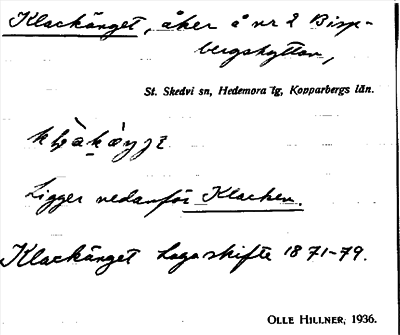 Klackänget, åker å nr 2 Bisp-
bergshyttan,
St. Skedvi sn, Hedemora tg, Kopparbergs län.
Ligger nedanför Klacken.
Klackänget Laga skifte 1871-79.
OLLE HILLNER, 1936.